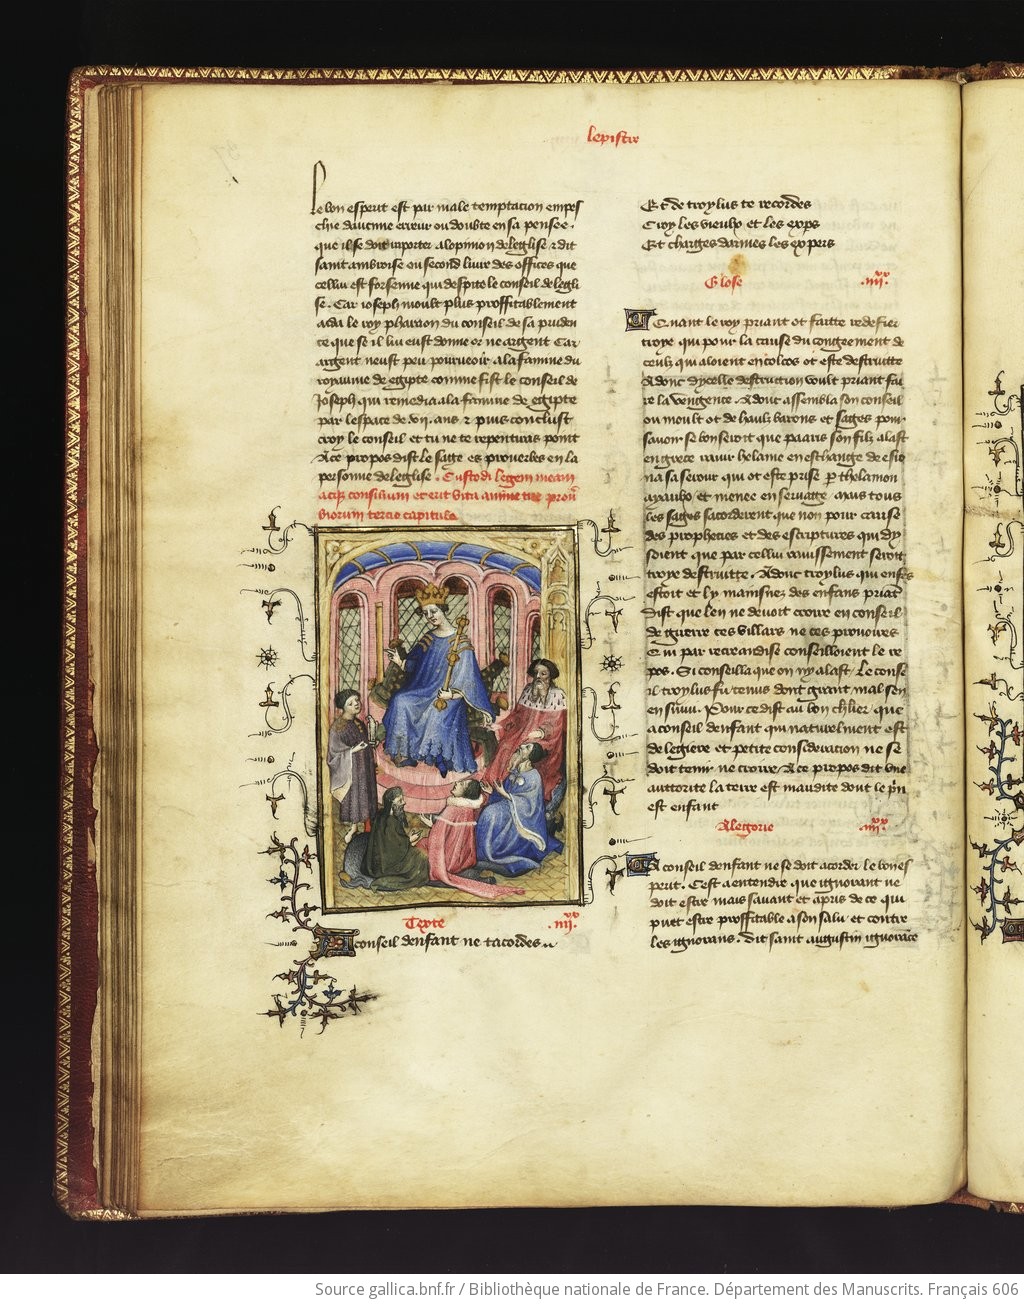 lepistre
Se bon esperit est par male temptacion empes
chie daucune erreur ou doubte en sa pensee.
que il se doit raporter a lopinion de leglise / dit
saint ambroise ou second livre des offices que
cellui est forsenne qui despite le conseil de legli
se. Car ioseph moult plus proffitablement
aida le roy pharaon du conseil de sa pruden
ce que se il lui eust donne or ne argent Car
argent neust peu pourveoir a la famine du
royaume de egipte comme fist le conseil de
Joseph qui remedia a la famine de egipte
par lespace de .vij. ans z puis conclust
croy le conseil et tu ne te repentiras point
A ce propos dist le sage es proverbes en la
personne de leglise. Custodi legem meam
atqz consilium et erit vita anime tue prou
biorum tercio capitulo
Texte .iiijxx.
A conseil denfant ne tacordes
Et de troylus te recordes
Croy les vieulx et les expers
Et charges darmes les expers
Glose .iiijxx.
Quant le roy priant ot faitte redefier
troye qui pour la cause du congeement de
ceulx qui aloient en colcos ot este destruitte
Adonc dycelle destruction voult priant fai
re la vengence. Adonc assembla son conseil
ou moult ot de haulx barons et sages pour
savoir se bon seroit que paaris son filz alast
en grece ravir helaine en eschange de esio
na sa seur qui ot este prise p thelamon
ayaulx et menee en servage mais tous
les sages sacorderent que non pour cause
des propheties et des escriptures qui dy
soient que par cellui ravissement seroit
troye destruitte. Adonc troylus qui enfes
estoit et ly mainsnez des enfans priant
dist que len ne devoit croire en conseil
de guerre ces villars ne ces provoires
Qui par recreandise conseilloient le re
pos. Si conseilla que on ny alast / Le conse
il troylus fu tenus dont grant mal sen
ensuivi. Pour ce dist au bon chlier que
a conseil denfant qui naturelment est
de legiere et petite consideracion ne se
doit tenir ne croire / A ce propos dit une
auctorite la terre est maudite dont le prin
est enfant
Alegorie .iiijxx.
A conseil denfant ne se doit acorder le bon es
perit. Cest a entendre que ignorant ne
doit estre mais savant et apris de ce qui
puet estre proffitable a son salu et contre
les ignorans. dit saint augustin ignorance
Source gallica.bnf.fr / Bibliothèque nationale de France. Département des Manuscrits. Français 606